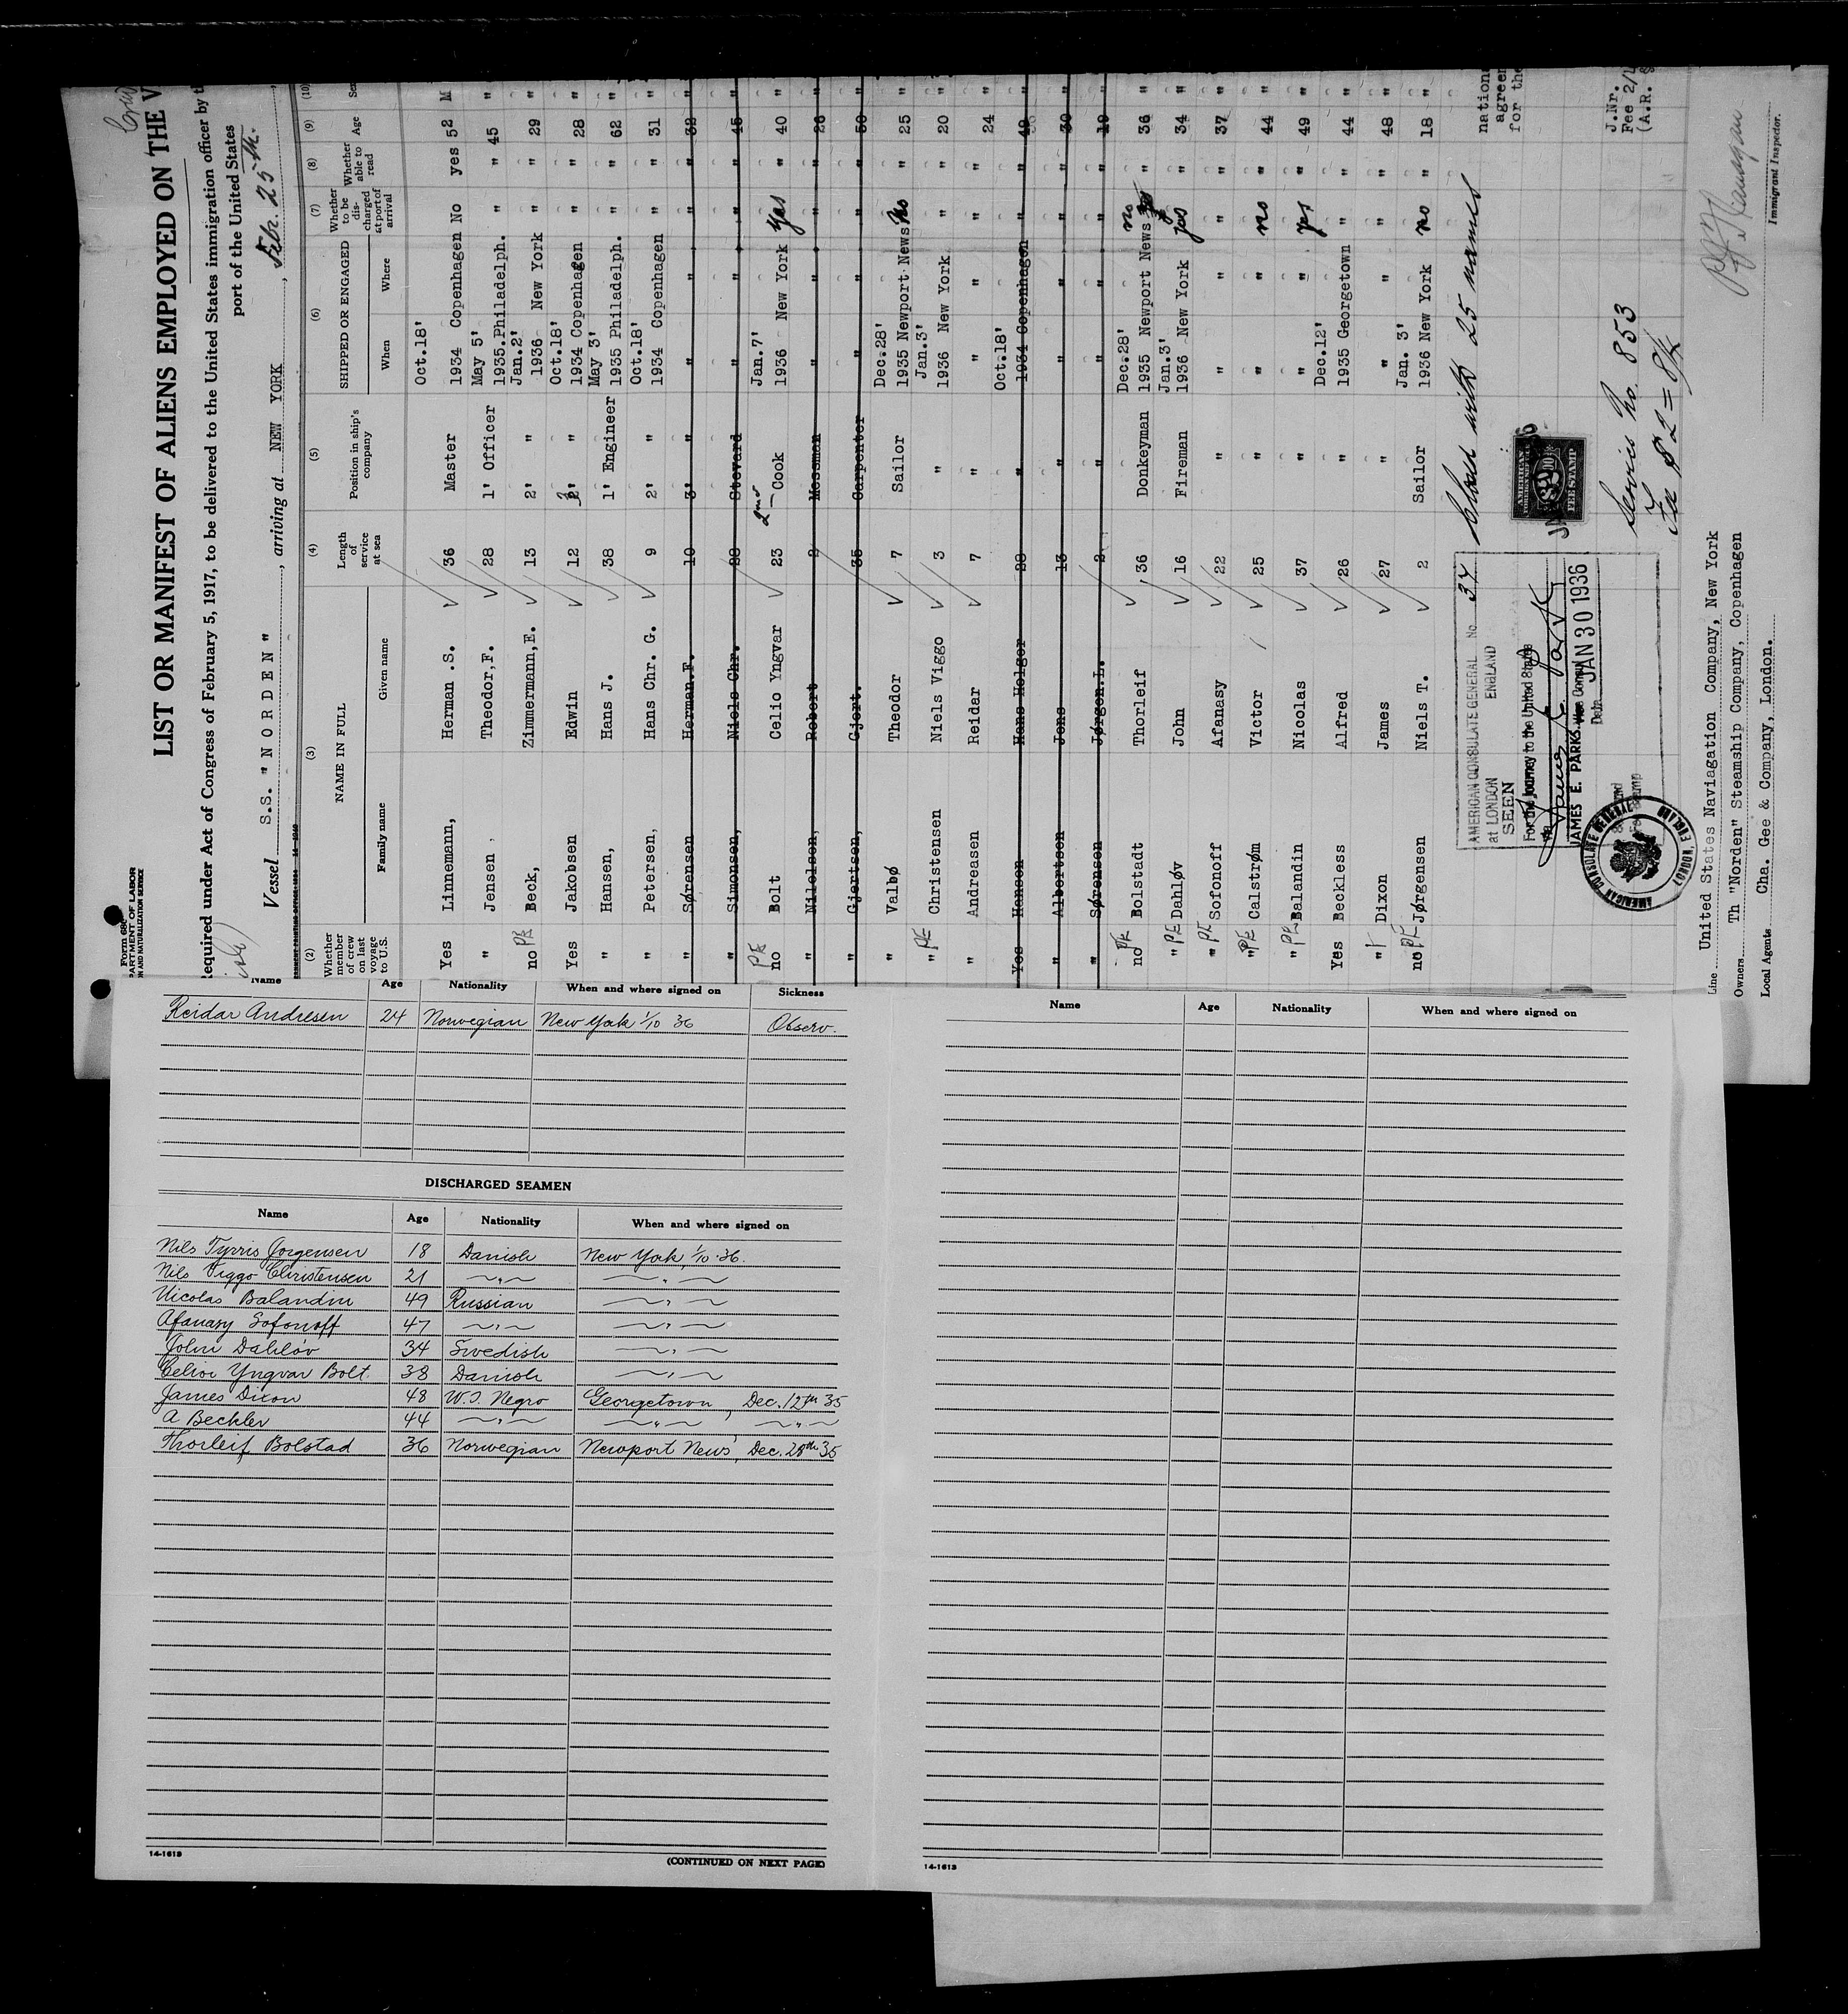 Form 680
DEPARTMENT OF LABOR
ON AND NATURALIZATION SERVICE
LIST OR MANIFEST OF ALIENS EMPLOYED ON THE V
Required under Act of Congress of February 5, 1917, to be delivered to the United States immigration officer by t
port of the United States
Vessel S.S. "NORDEN", arriving at NEW YORK, Feb. 25th.
(2) (3) (4) (5) (6) (7) (8) (9) (10)
Whether member of crew on last voyage to U.S. NAME IN FULL Family name Given name Length of service at sea Position in ship's company SHIPPED OR ENGAGED When Where Whether to be discharged at port of arrival Whether able to read Age
Yes Linnemann, Herman .S. 36 Master Oct.18' 1934 Copenhagen No yes 52 M
" Jensen , Theodor,F. 28 1' Officer May 5' 1935.Philadelph. " " 45 "
no PE Beck, Zimmermann,E. 13 2' " Jan.2' 1936 New York " " 29 "
Yes Jakobsen Edwin 12 2' " Oct.18' 1934 Copenhagen " " 28 "
" Hansen, Hans J. 38 1' Engineer May 3' 1935 Philadelph. " " 62 "
" Petersen, Hans Chr. G. 9 2' " Oct.18' 1934 Copenhagen " " 31 "
" Sørensen Herman.F. 10 3' " " " " " 32 "
" Simonsen, Niels Chr. 28 Steward " " " " 45 "
PE no Bolt Celio Yngvar 23 2nd Cook Jan.7' 1936 New York yes " 40 "
" Nielsen, Robert 2 Messman " " " " 26 "
" Gjertsen, Gjert. 35 Carpenter " " " " 50 "
" Valbø Theodor 7 Sailor Dec.28' 1935 Newport News No " 25 "
" PE Christensen Niels Viggo 3 " Jan.3' 1936 New York " " 20 "
" Andreasen Reidar 7 " " " " " 24 "
Yes Hansen Hans Holger 28 " Oct.18' 1934 Copenhagen " " 49 "
" Albertsen Jens 13 " " " " " 30 "
" Sørensen Jørgen.L. 2 " " " " " 19 "
no PE Bolstadt Thorleif 36 Donkeyman Dec.28' 1935 Newport News no " 36 "
" PE Dahløv John 16 Fireman Jan.3' 1936 New York yes " 34 "
" PE Sofonoff Afanasy 22 " " " " " 37 "
" PE Calstrøm Victor 25 " " " no " 44 "
" PE Balandin Nicolas 37 " " " yes " 49 "
Yes Beckless Alfred 26 " Dec.12' 1935 Georgetown " " 44 "
" Dixon James 27 " " " " " 48 "
no PE Jørgensen Niels T. 2 Sailor Jan. 3' 1936 New York no " 18 "
Closed with 25 names
nation
agree
for the
AMERICAN CONSULATE GENERAL No. 37
at LONDON ENGLAND
SEEN
For the journey to the United States
James E. Parks
JAMES E. PARKS. Vice Consul
Date JAN 30 1936
AMERICAN CONSULATE GENERAL LONDON, ENGLAND
AMERICAN
FEE STAMP
Service No. 853
Fee $2 = 8/2
J.Nr.
Fee 2/
(A.R.
Line United States Naviagation Company, New York
Owners Th "Norden" Steamship Company, Copenhagen
Local Agents Cha. Gee & Company, London.
Immigrant Inspector.
Name Age Nationality When and where signed on Sickness
Reidar Andresen 24 Norwegian New York 1/10 36 Observ.
DISCHARGED SEAMEN
Name Age Nationality When and where signed on
Nils Tyrris Jorgensen 18 Danish New York 1/10.36.
Nils Viggo Christensen 21 " "
Nicolas Balandin 49 Russian "
Afanasy Sofonoff 47 " "
John Dahlöv 34 Swedish "
Celioi Yngvar Bolt. 38 Danish "
James Dixon 48 W.I. Negro Georgetown, Dec. 12th 35
A Beckler 44 " " "
Thorleif Bolstad 36 Norwegian Newport News, Dec. 28th 35
14-1613
(CONTINUED ON NEXT PAGE)
Name Age Nationality When and where signed on
14-1613